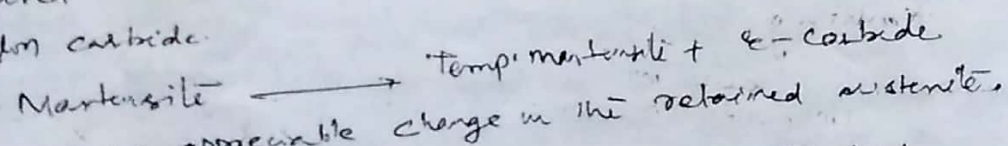 carbide.
Martensite → Temp. martensite + ε - carbide
change in the retained austenite.